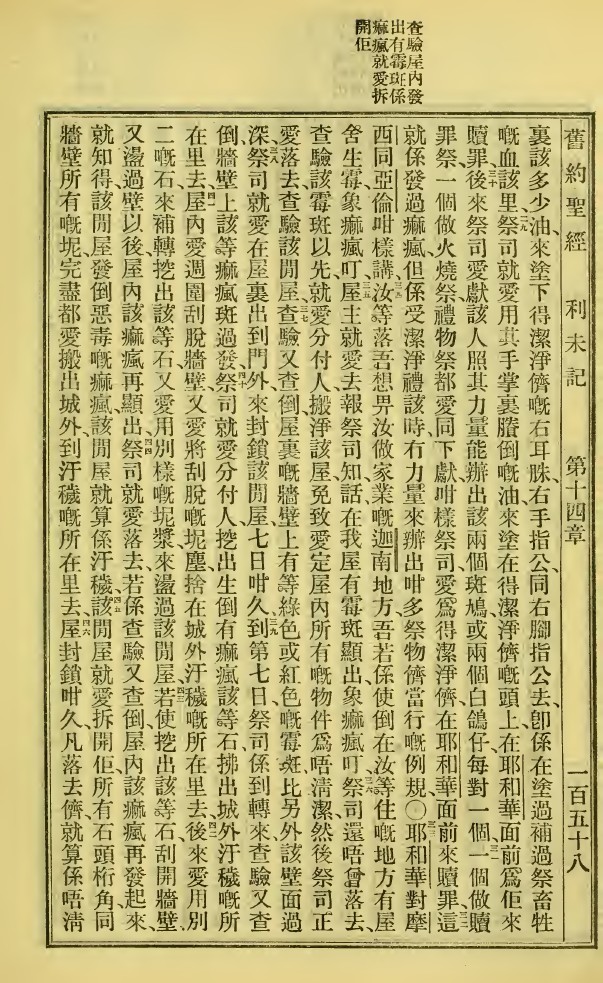 查驗屋內發
出有霉斑係
癩瘋就愛拆
開佢
舊約聖經 利未記 第十四章 一百五十八
裏該多少油、來塗下得潔淨儕嘅右耳腅、右手指公、同右腳指公去、卽係在塗過補過祭畜牲
嘅血該里、二九祭司就愛用其手掌裏賸倒嘅油、來塗在得潔淨儕嘅頭上、在耶和華面前爲佢來
贖罪、三十後來祭司愛獻該人照其力量能辦出該兩個斑鳩、或兩個白鴿仔、三一每對一個、一個做贖
罪祭、一個做火燒祭、禮物祭都愛同下獻、咁樣祭司愛爲得潔淨儕在耶和華面前來贖罪、三二這
就係發過癩瘋、但係受潔淨禮該時冇力量來辦出咁多祭物儕當行嘅例規、〇三三耶和華對摩
西同亞倫咁樣講、三四汝等落吾想畀汝做家業嘅迦南地方、吾若係使倒在汝等住嘅地方有屋
舍生霉、象癩瘋叮、三五屋主就愛去報祭司知、話在我屋有霉斑顯出、象癩瘋叮、三六祭司還唔曾落去、
查驗該霉斑以先、就愛分付人搬淨該屋、免致愛定屋內所有嘅物件爲唔清潔、然後祭司正
愛落去查驗該間屋、三七查驗又查倒屋裏嘅牆壁上有等綠色或紅色嘅霉斑、比另外該壁面過
深、三八祭司就愛在屋裏出到門外、來封鎖該間屋、七日咁久、三九到第七日祭司係到轉來查驗、又查
倒牆壁上該等癩瘋斑過發、四十祭司就愛分付人挖出生倒有癩瘋該等石、拂出城外汙穢嘅所
在里去、四一屋內愛週圍刮脫牆壁、又愛將刮脫嘅坭塵捨在城外汙穢嘅所在里去、四二後來愛用別
二嘅石來補轉挖出該等石、又愛用別樣嘅坭漿來盪過該間屋、四三若使挖出該等石刮開牆壁
又盪過壁以後、屋內該癩瘋再顯出、四四祭司就愛落去、若係查驗又查倒屋內該癩瘋再發起來、
就知得該間屋發倒惡毒嘅癩瘋、該間屋就算係汙穢、四五該間屋就愛拆開佢、所有石頭桁角同
牆壁所有嘅坭、完盡都愛搬出城外、到汙穢嘅所在里去、四六屋封鎖咁久、凡落去儕、就算係唔淸